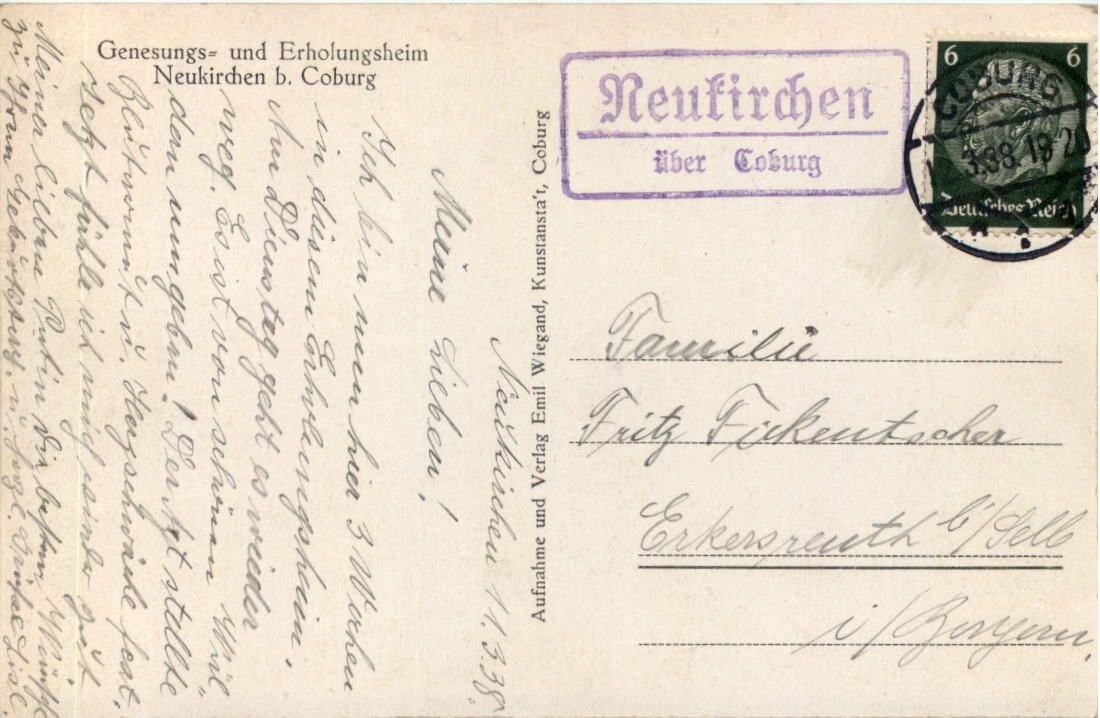 Genesungs= und Erholungsheim
Neukirchen b. Coburg
Neukirchen 1.3.38.
Meine Lieben!
Ich bin nun hier 3 Wochen
in diesem Erholungsheim.
Am Dienstag geht es wieder
weg. Es ist von schönen Wäl
dern umgeben! Der Arzt stellte
Blutarmut u. Herzschwäche fest.
Jetzt fühle ich mich wieder gut
Meiner lieben Patin die besten Wünsche
zu Ihrem Geburtstag, u. herzl. Grüße Lisl.
Aufnahme und Verlag Emil Wiegand, Kunstansta't, Coburg
Neukirchen
über Coburg
6 6
Deutsches Reich
COBURG
3.38 18-20
Familie
Fritz Fickentscher
Erkersreuth b/Selb
i/Bayern.